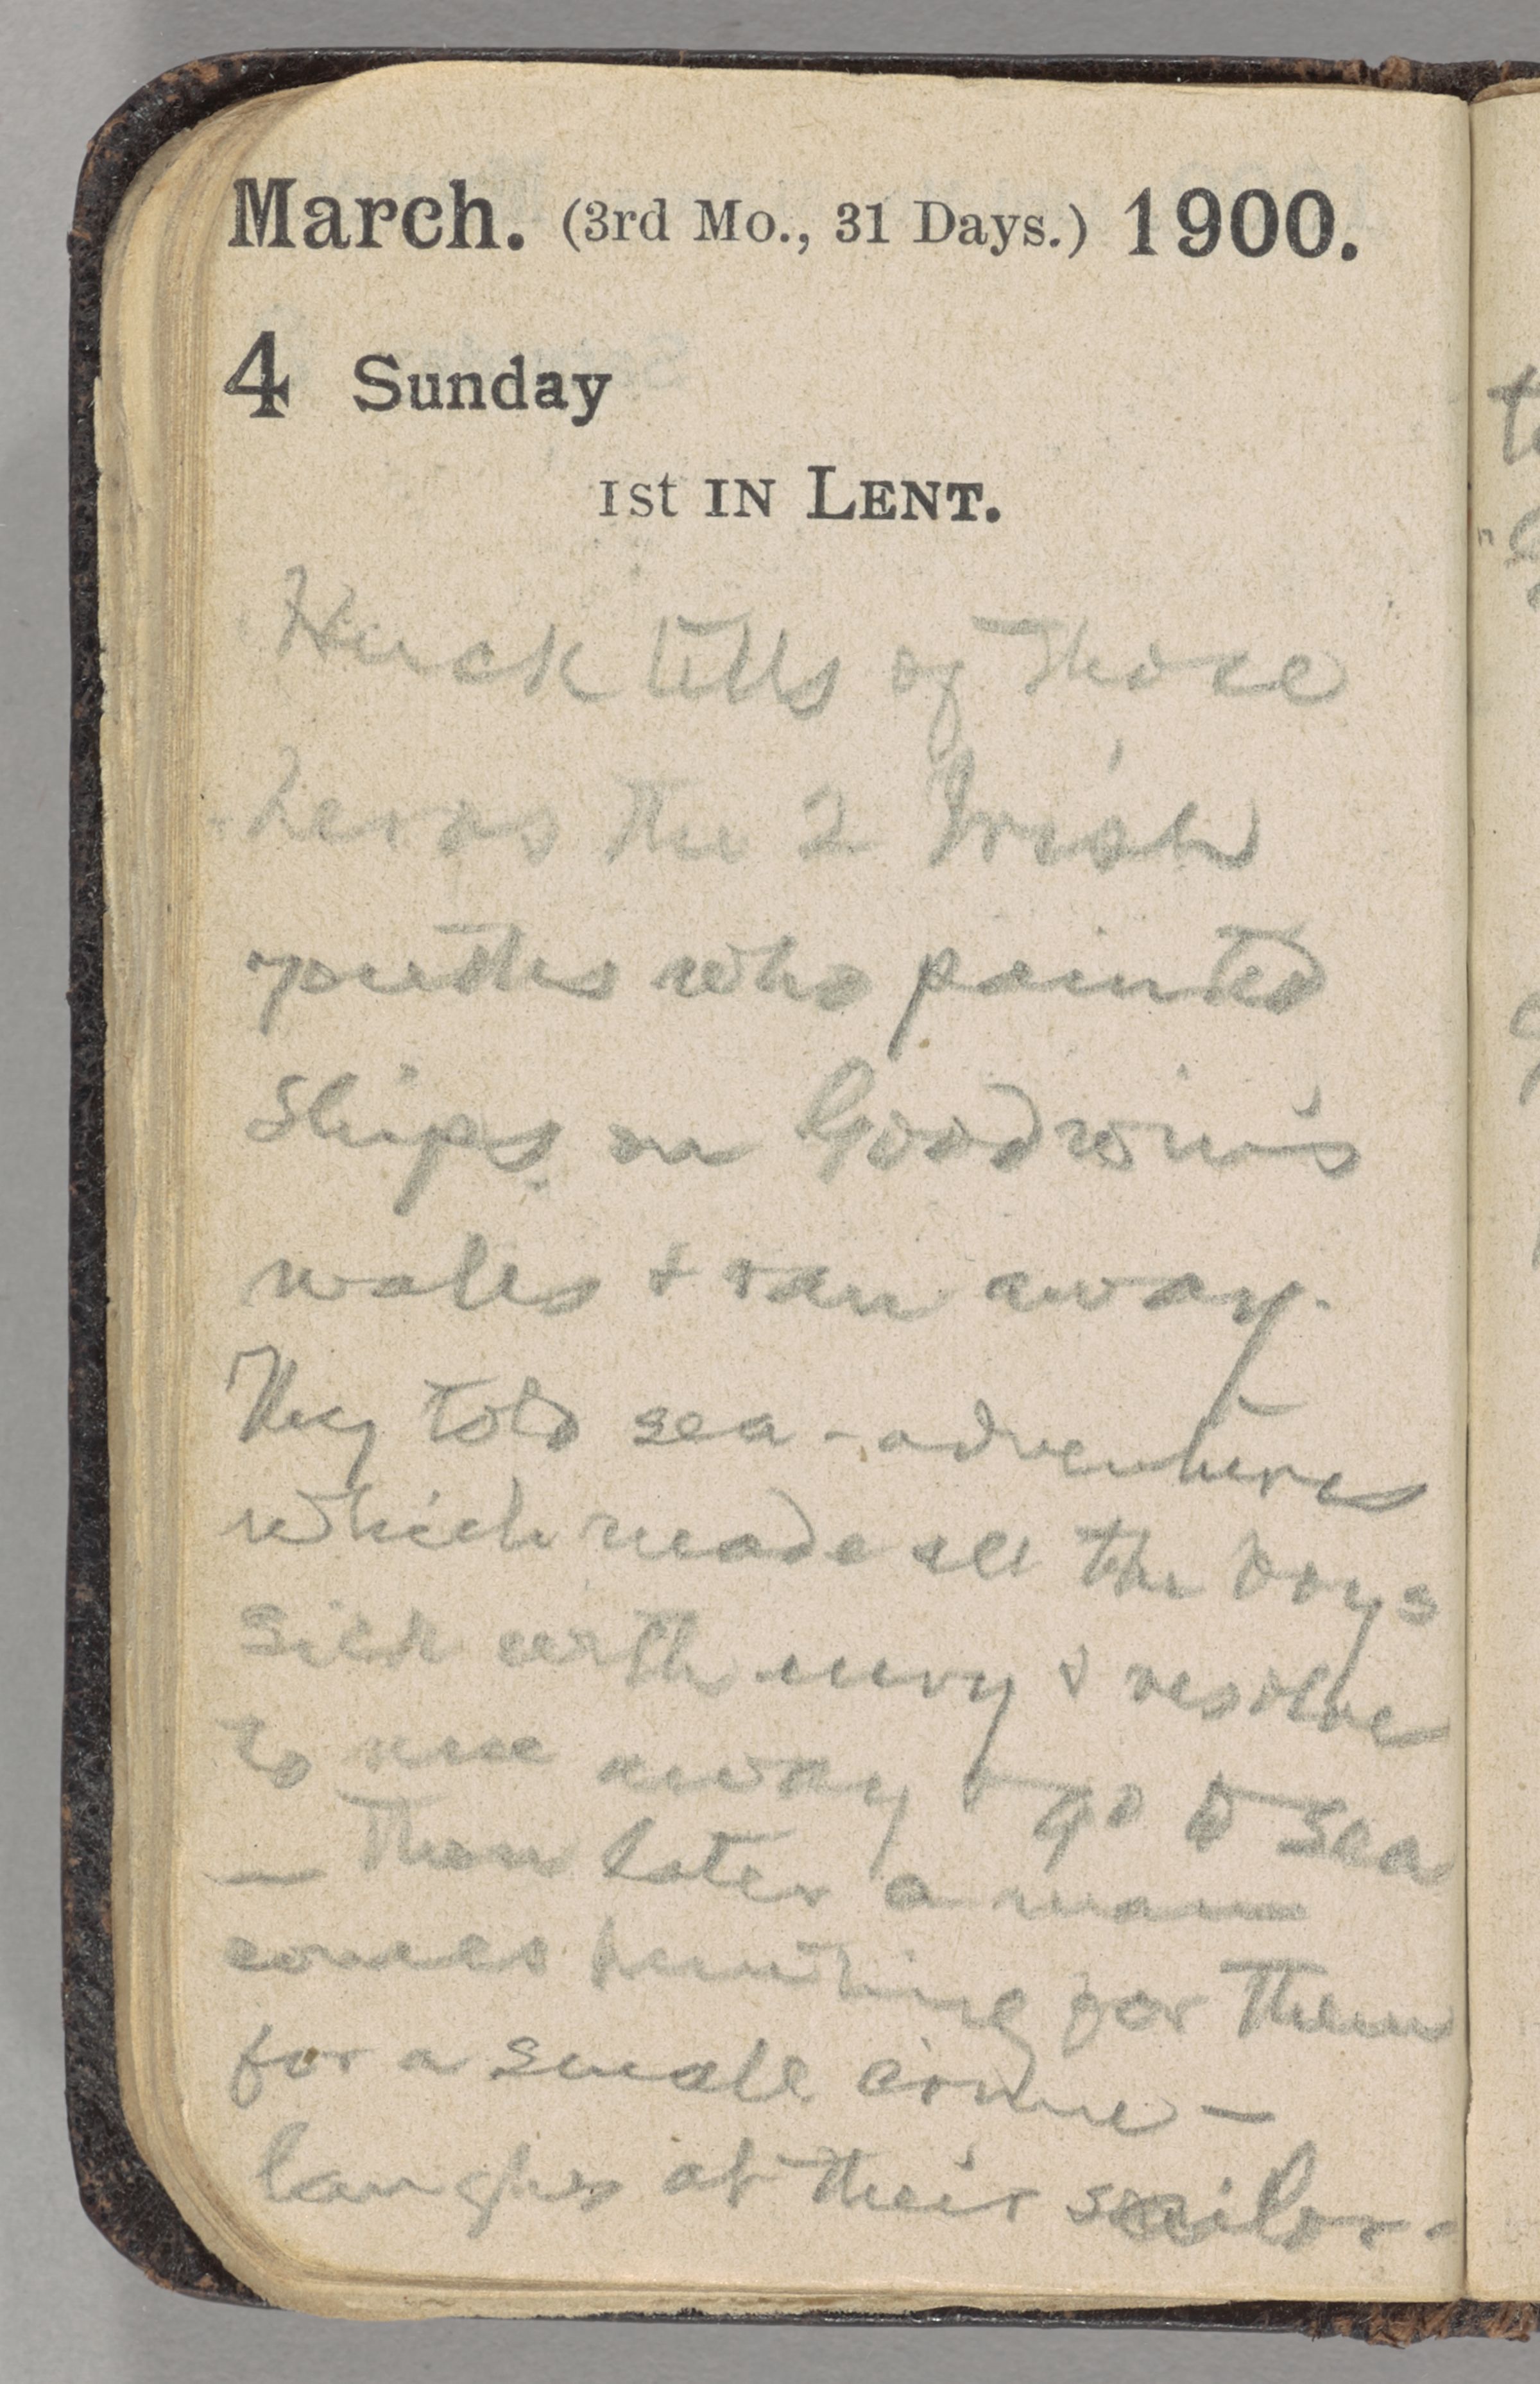 March. (3rd Mo., 31 Days.) 1900.
4 Sunday
1st IN LENT.
Huck tells of those
heros the 2 Irish
youths who painted
ships on Goodwin's
walls & ran away.
They told sea-adventures
which made all the boys
sick with envy & resolve
to run away & go to sea
— then later a man
comes hunting for them
for a small crime —
laughs at their sailor-